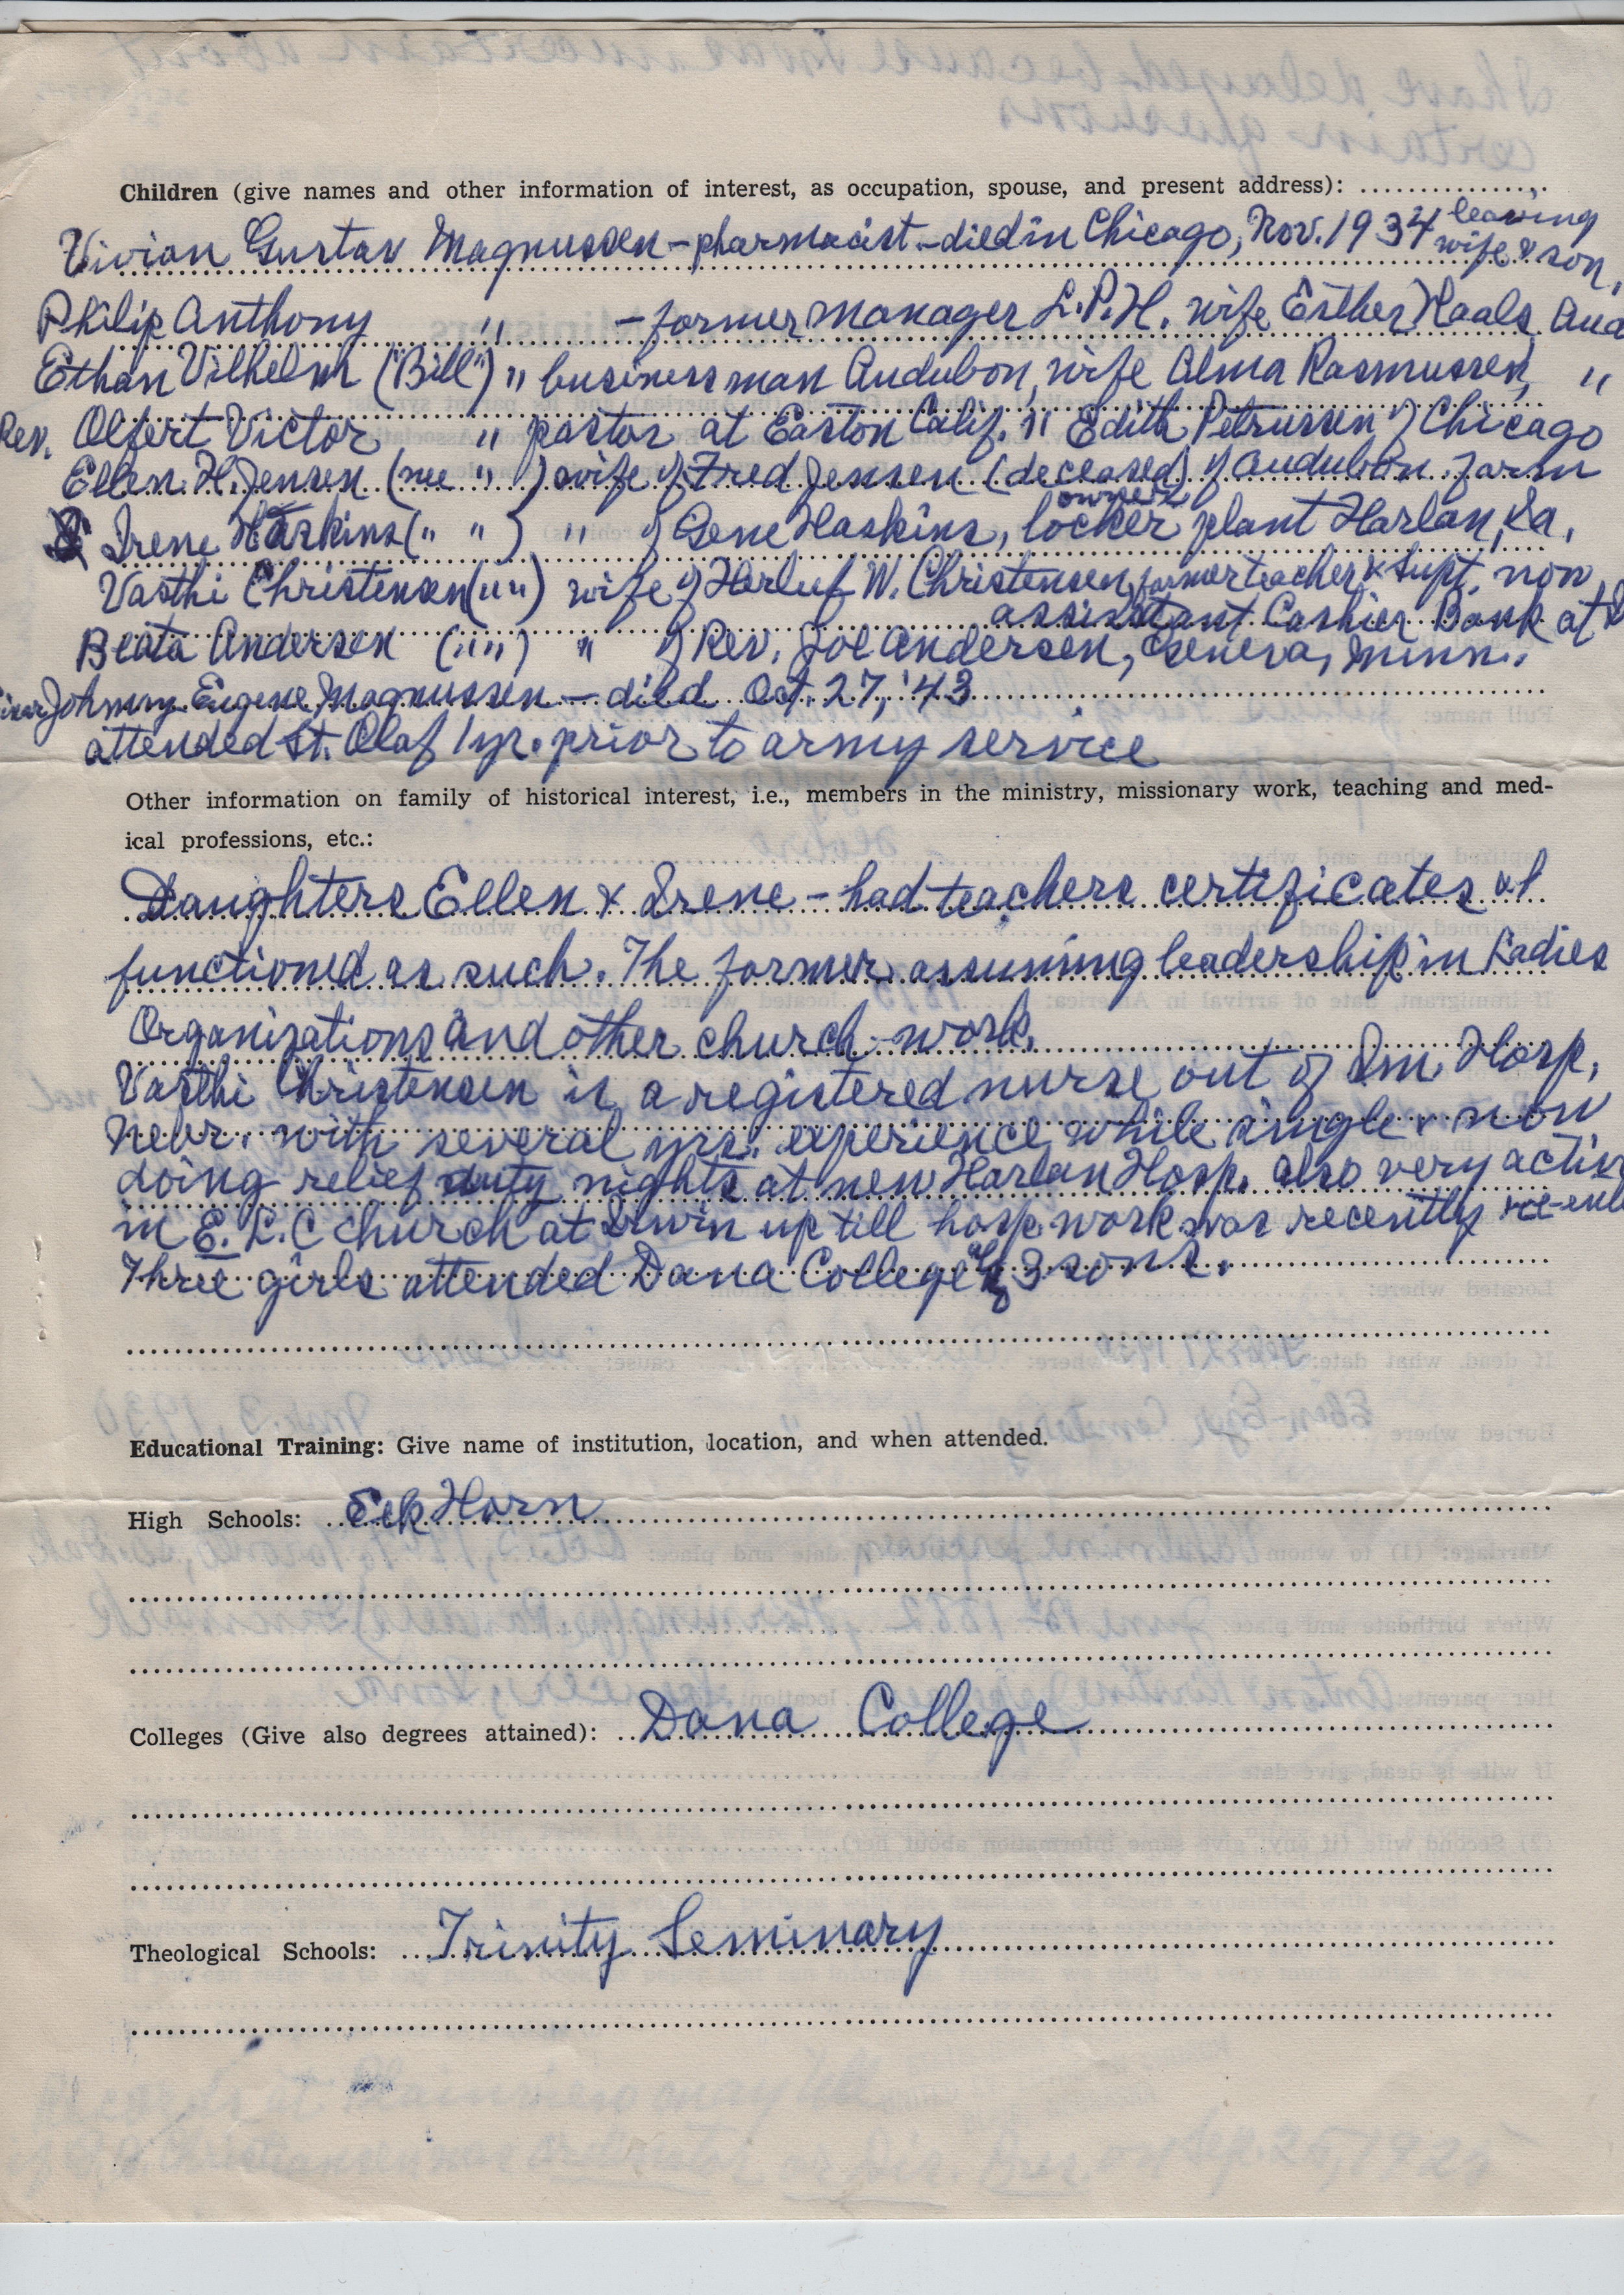 Children (give names and other information of interest, as occupation, spouse, and present address):
Vivian Gustav Magnussen - pharmacist - died in Chicago, Nov. 1934 leaving wife & son,
Philip Anthony " - former manager L.P.H. wife Esther Haals Aud
Ethan Vilhelm ("Bill") " business man Audubon, wife Alma Rasmussen, "
Rev. Olfert Victor " pastor at Easton Calif. " Edith Petrussen of Chicago
Ellen H. Jensen (nee " ) wife of Fred Jensen (deceased) of Audubon farm
Irene Haskins (" ") " of Gene Haskins, locker plant owner Harlan, Ia.
Vasthi Christensen ("") wife of Herluf W. Christensen, former teacher & supt. now
assistant Cashier Bank at
Beata Andersen ("") " of Rev. Joe Andersen, Geneva, Minn.
Johnny Eugene Magnussen - died Oct. 27, '43
attended St. Olaf 1 yr. prior to army service
Other information on family of historical interest, i.e., members in the ministry, missionary work, teaching and med-
ical professions, etc.:
Daughters Ellen & Irene - had teachers certificates &
functioned as such. The former assuming leadership in Ladies
Organizations and other church work.
Vasthi Christensen is a registered nurse out of Im. Hosp,
Nebr. with several yrs. experience while single & now
doing relief duty nights at new Harlan Hosp. also very activ
in E. L. C church at Irwin up till hosp. work was recently re-ent
Three girls attended Dana College & 3 sons.
Educational Training: Give name of institution, location, and when attended.
High Schools: Elk Horn
Colleges (Give also degrees attained): Dana College
Theological Schools: Trinity Seminary